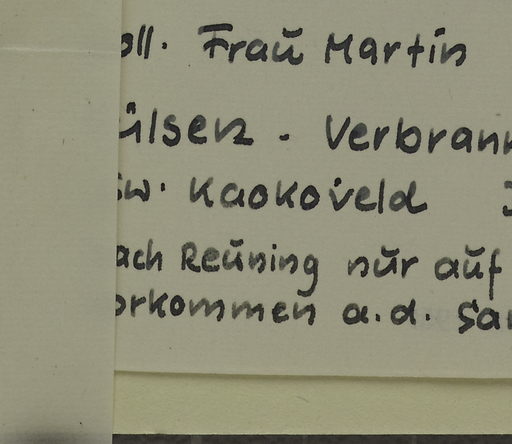 oll. Frau Martin
ülsen - Verbrann
sw. Kaokoveld
ach Reuning nur auf
orkommen a.d. Sa